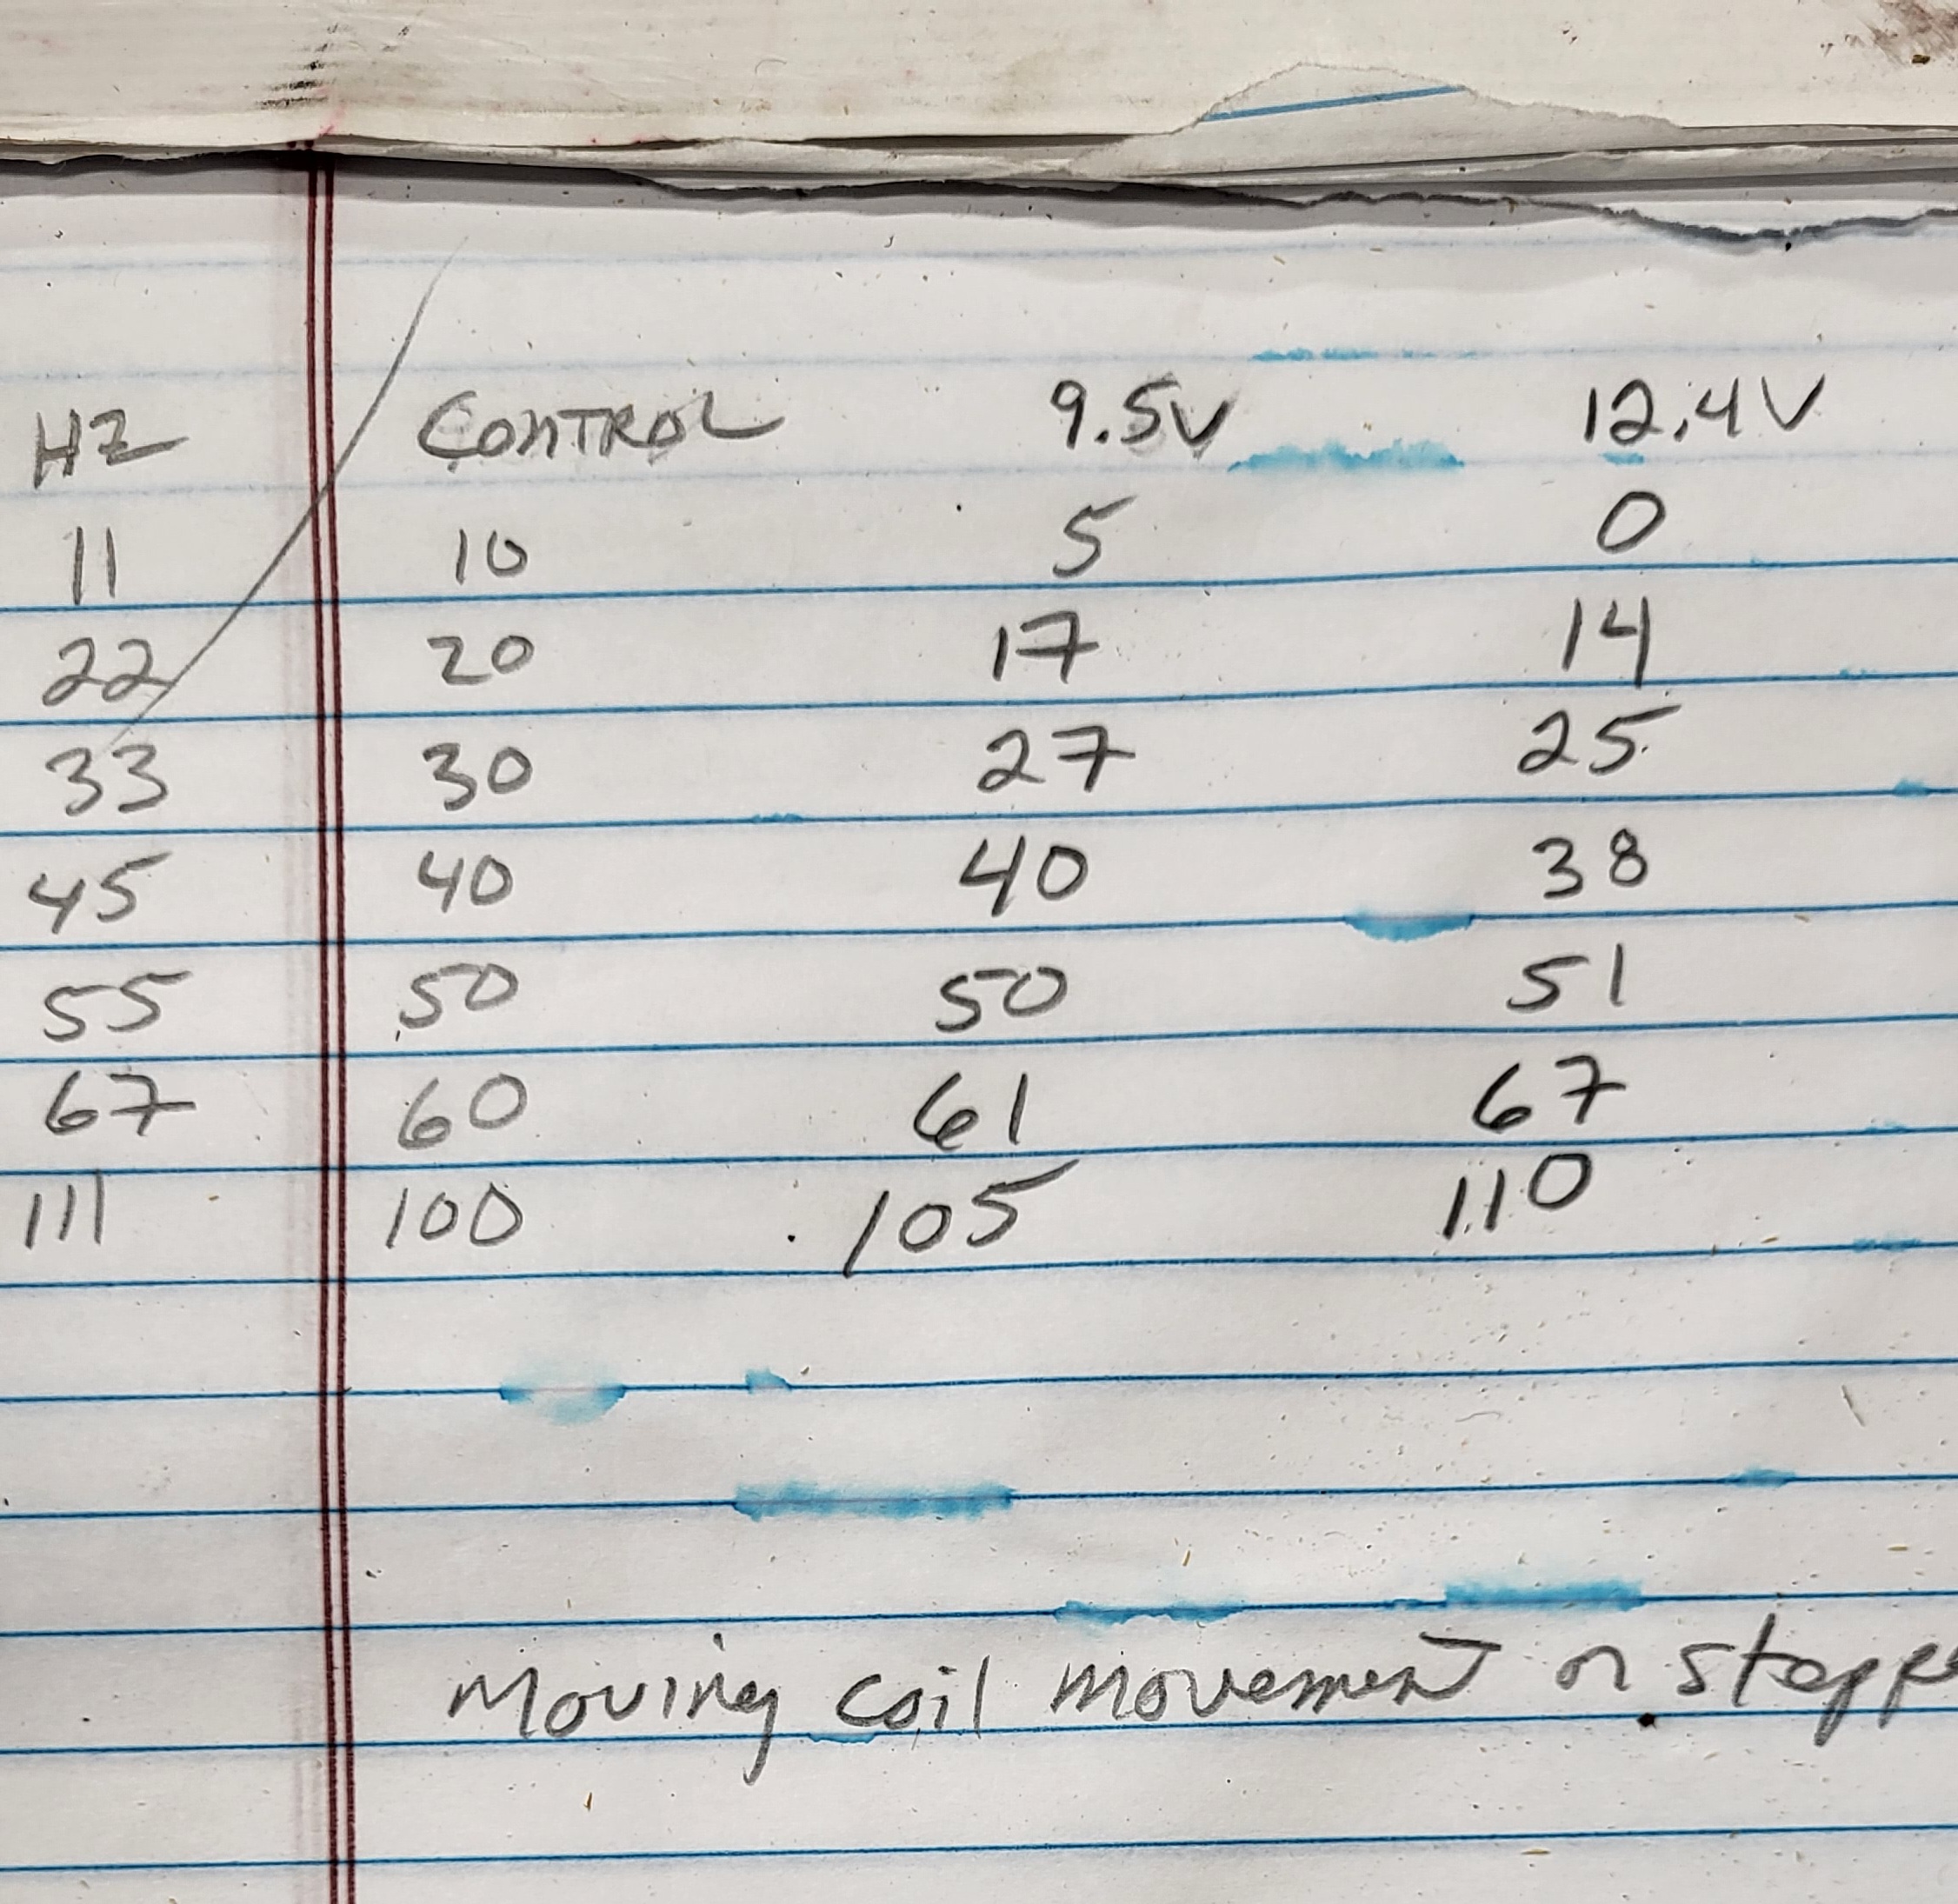 HZ CONTROL 9.5V 12.4V
11 10 5 0
22 20 17 14
33 30 27 25
45 40 40 38
55 50 50 51
67 60 61 67
111 100 105 110
Moving coil movement or stoppe